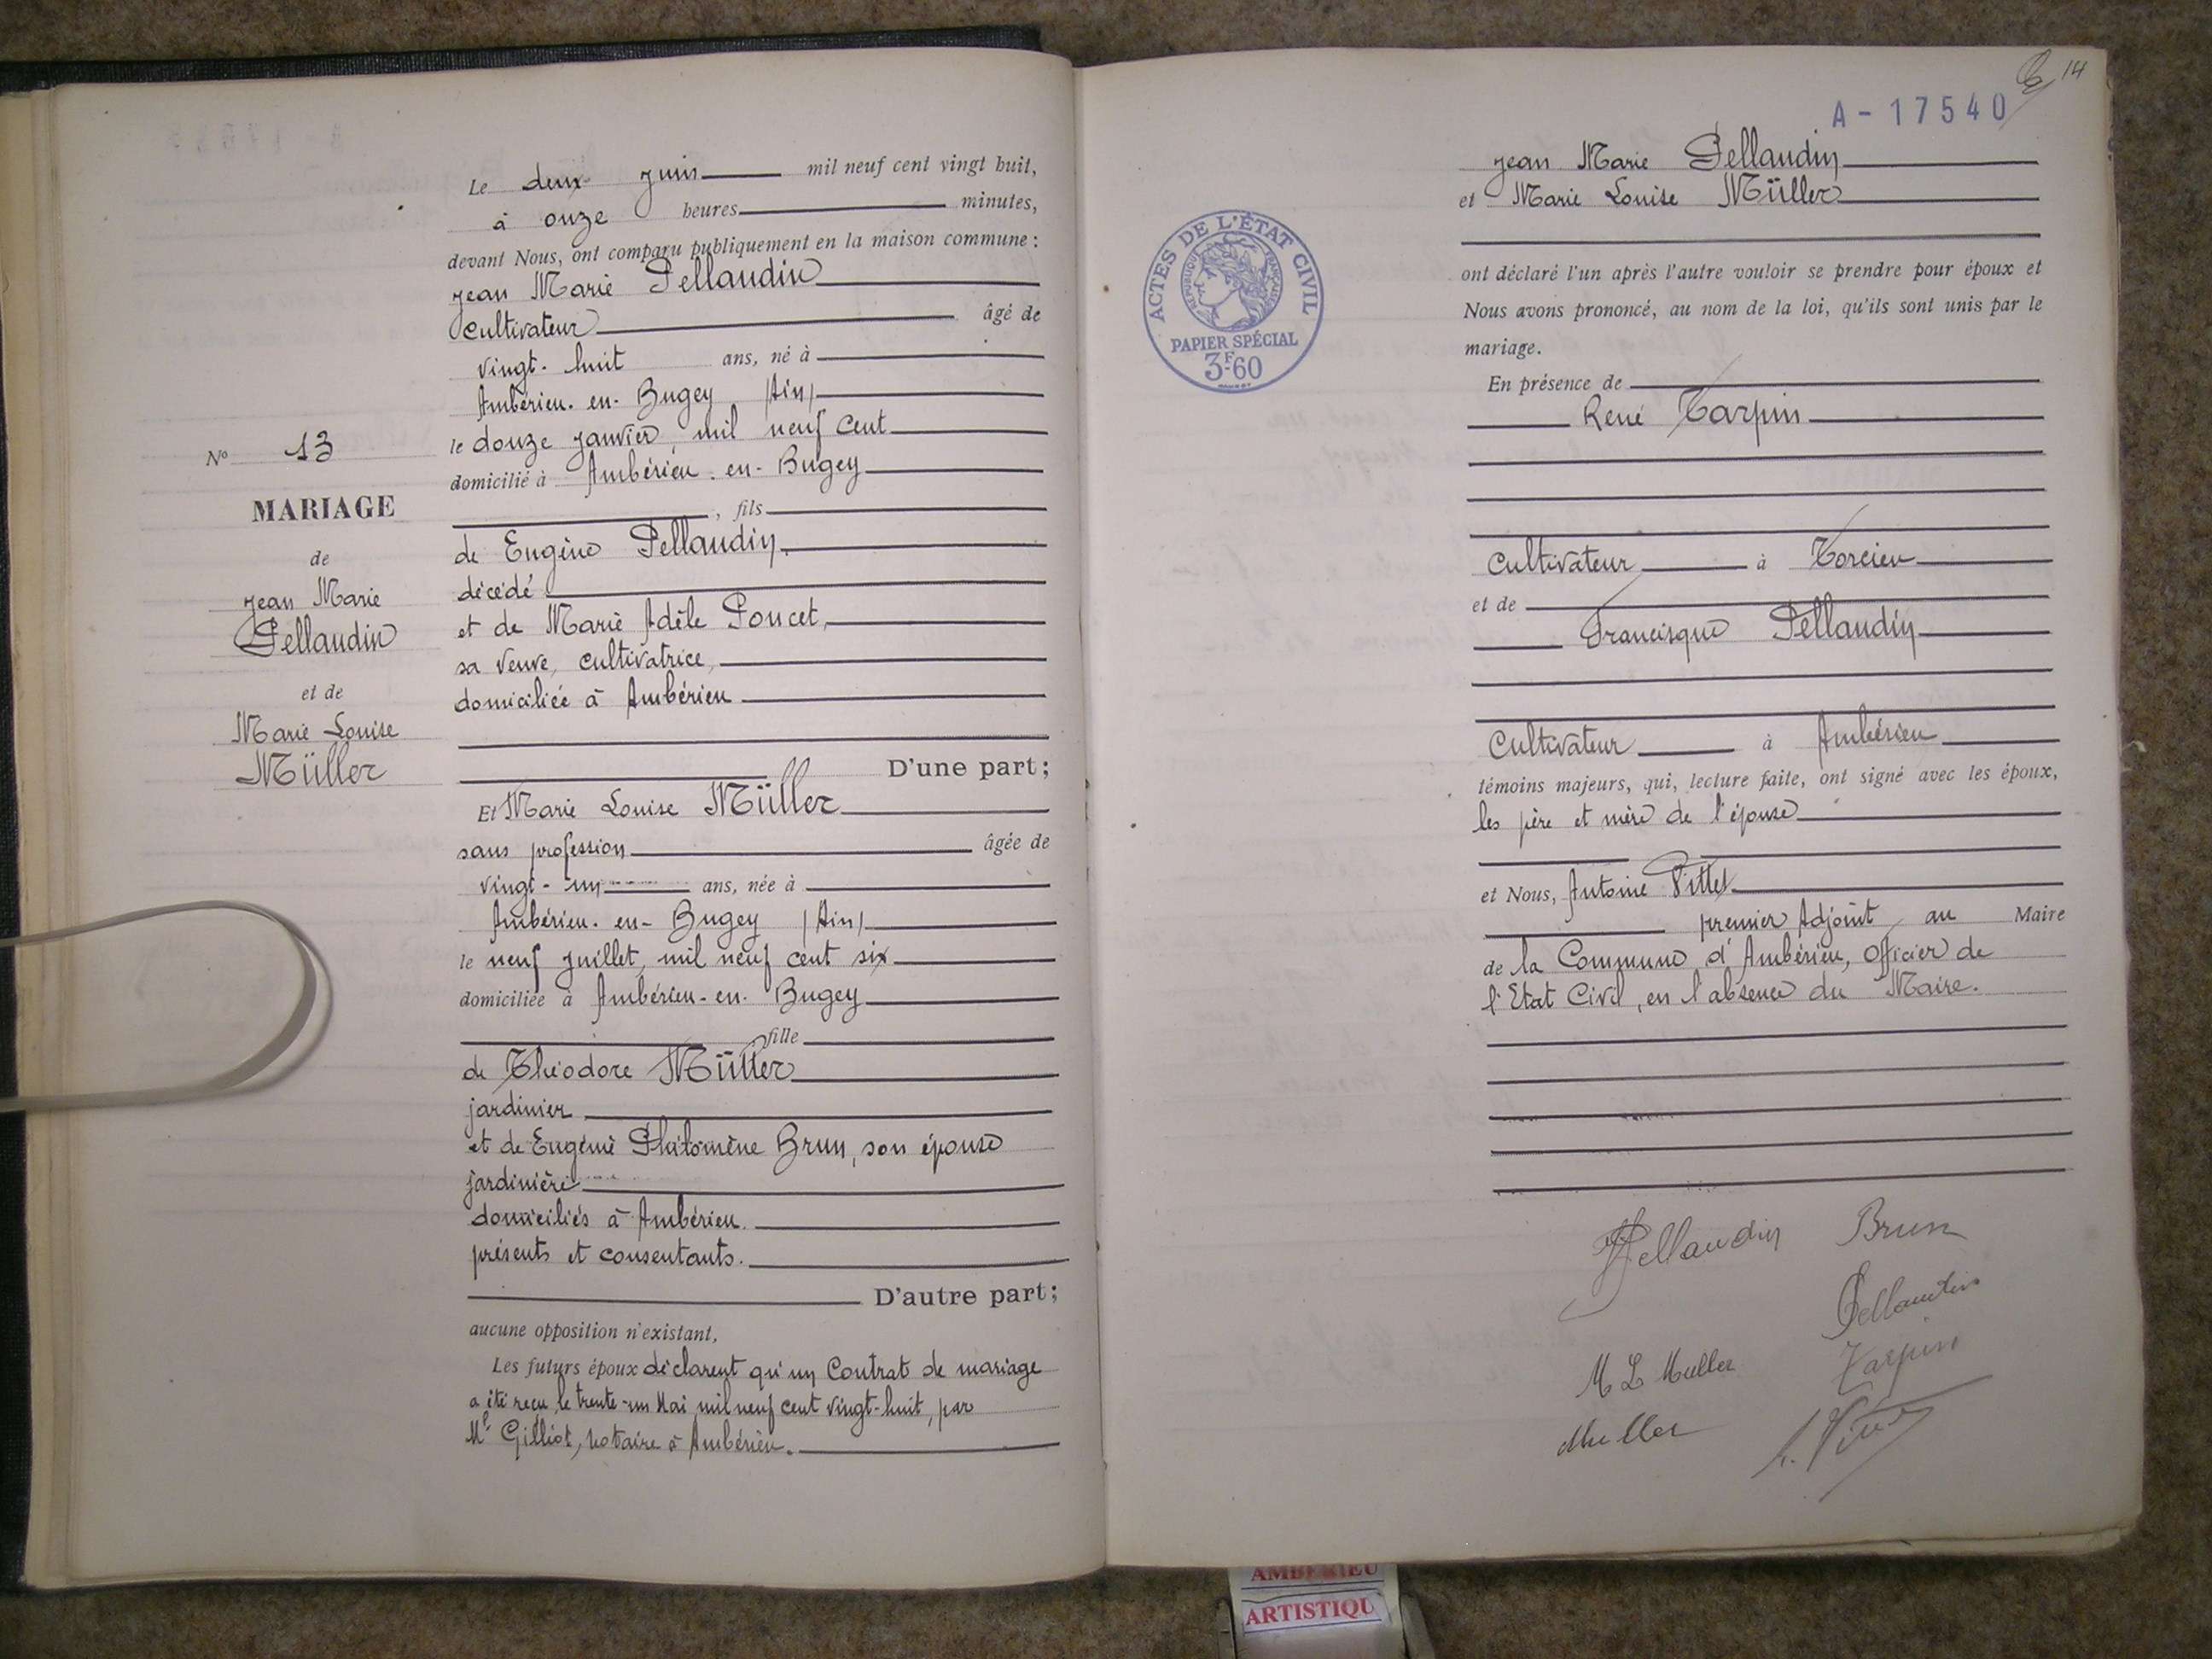 N° 13
MARIAGE
de
Jean Marie
Pellaudin
et de
Marie Louise
Müller
Le deux juin mil neuf cent vingt huit,
à onze heures minutes,
devant Nous, ont comparu publiquement en la maison commune :
Jean Marie Pellaudin
cultivateur âgé de
vingt-huit ans, né à
Ambérieu-en-Bugey (Ain)
le douze janvier, mil neuf cent
domicilié à Ambérieu-en-Bugey
, fils
de Eugène Pellaudin,
décédé
et de Marie Adèle Poncet,
sa veuve, cultivatrice,
domiciliée à Ambérieu
D'une part ;
Et Marie Louise Müller
sans profession âgée de
vingt-un ans, née à
Ambérieu-en-Bugey (Ain)
le neuf juillet, mil neuf cent six
domiciliée à Ambérieu-en-Bugey
fille
de Théodore Müller
jardinier
et de Eugénie Philomène Brun, son épouse
jardinière
domiciliés à Ambérieu.
présents et consentants.
D'autre part ;
aucune opposition n'existant,
Les futurs époux déclarent qu'un Contrat de mariage
a été reçu le trente-un Mai mil neuf cent vingt-huit, par
Me Gilliot, notaire à Ambérieu.
14
A - 17540
Jean Marie Pellaudin
et Marie Louise Müller
ACTES DE L'ÉTAT CIVIL
RÉPUBLIQUE FRANÇAISE
PAPIER SPÉCIAL
3F.60
ont déclaré l'un après l'autre vouloir se prendre pour époux et
Nous avons prononcé, au nom de la loi, qu'ils sont unis par le
mariage.
En présence de
René Tarpin
Cultivateur à Torcieu
et de
Francisque Pellaudin
Cultivateur à Ambérieu
témoins majeurs, qui, lecture faite, ont signé avec les époux,
les père et mère de l'épouse
et Nous, Antoine
premier Adjoint au Maire
de la Commune d'Ambérieu, Officier de
l'Etat Civil, en l'absence du Maire.
Pellaudin Brun
Pellaudin
M L Muller Tarpin
Muller
AMBERIEU
ARTISTIQU